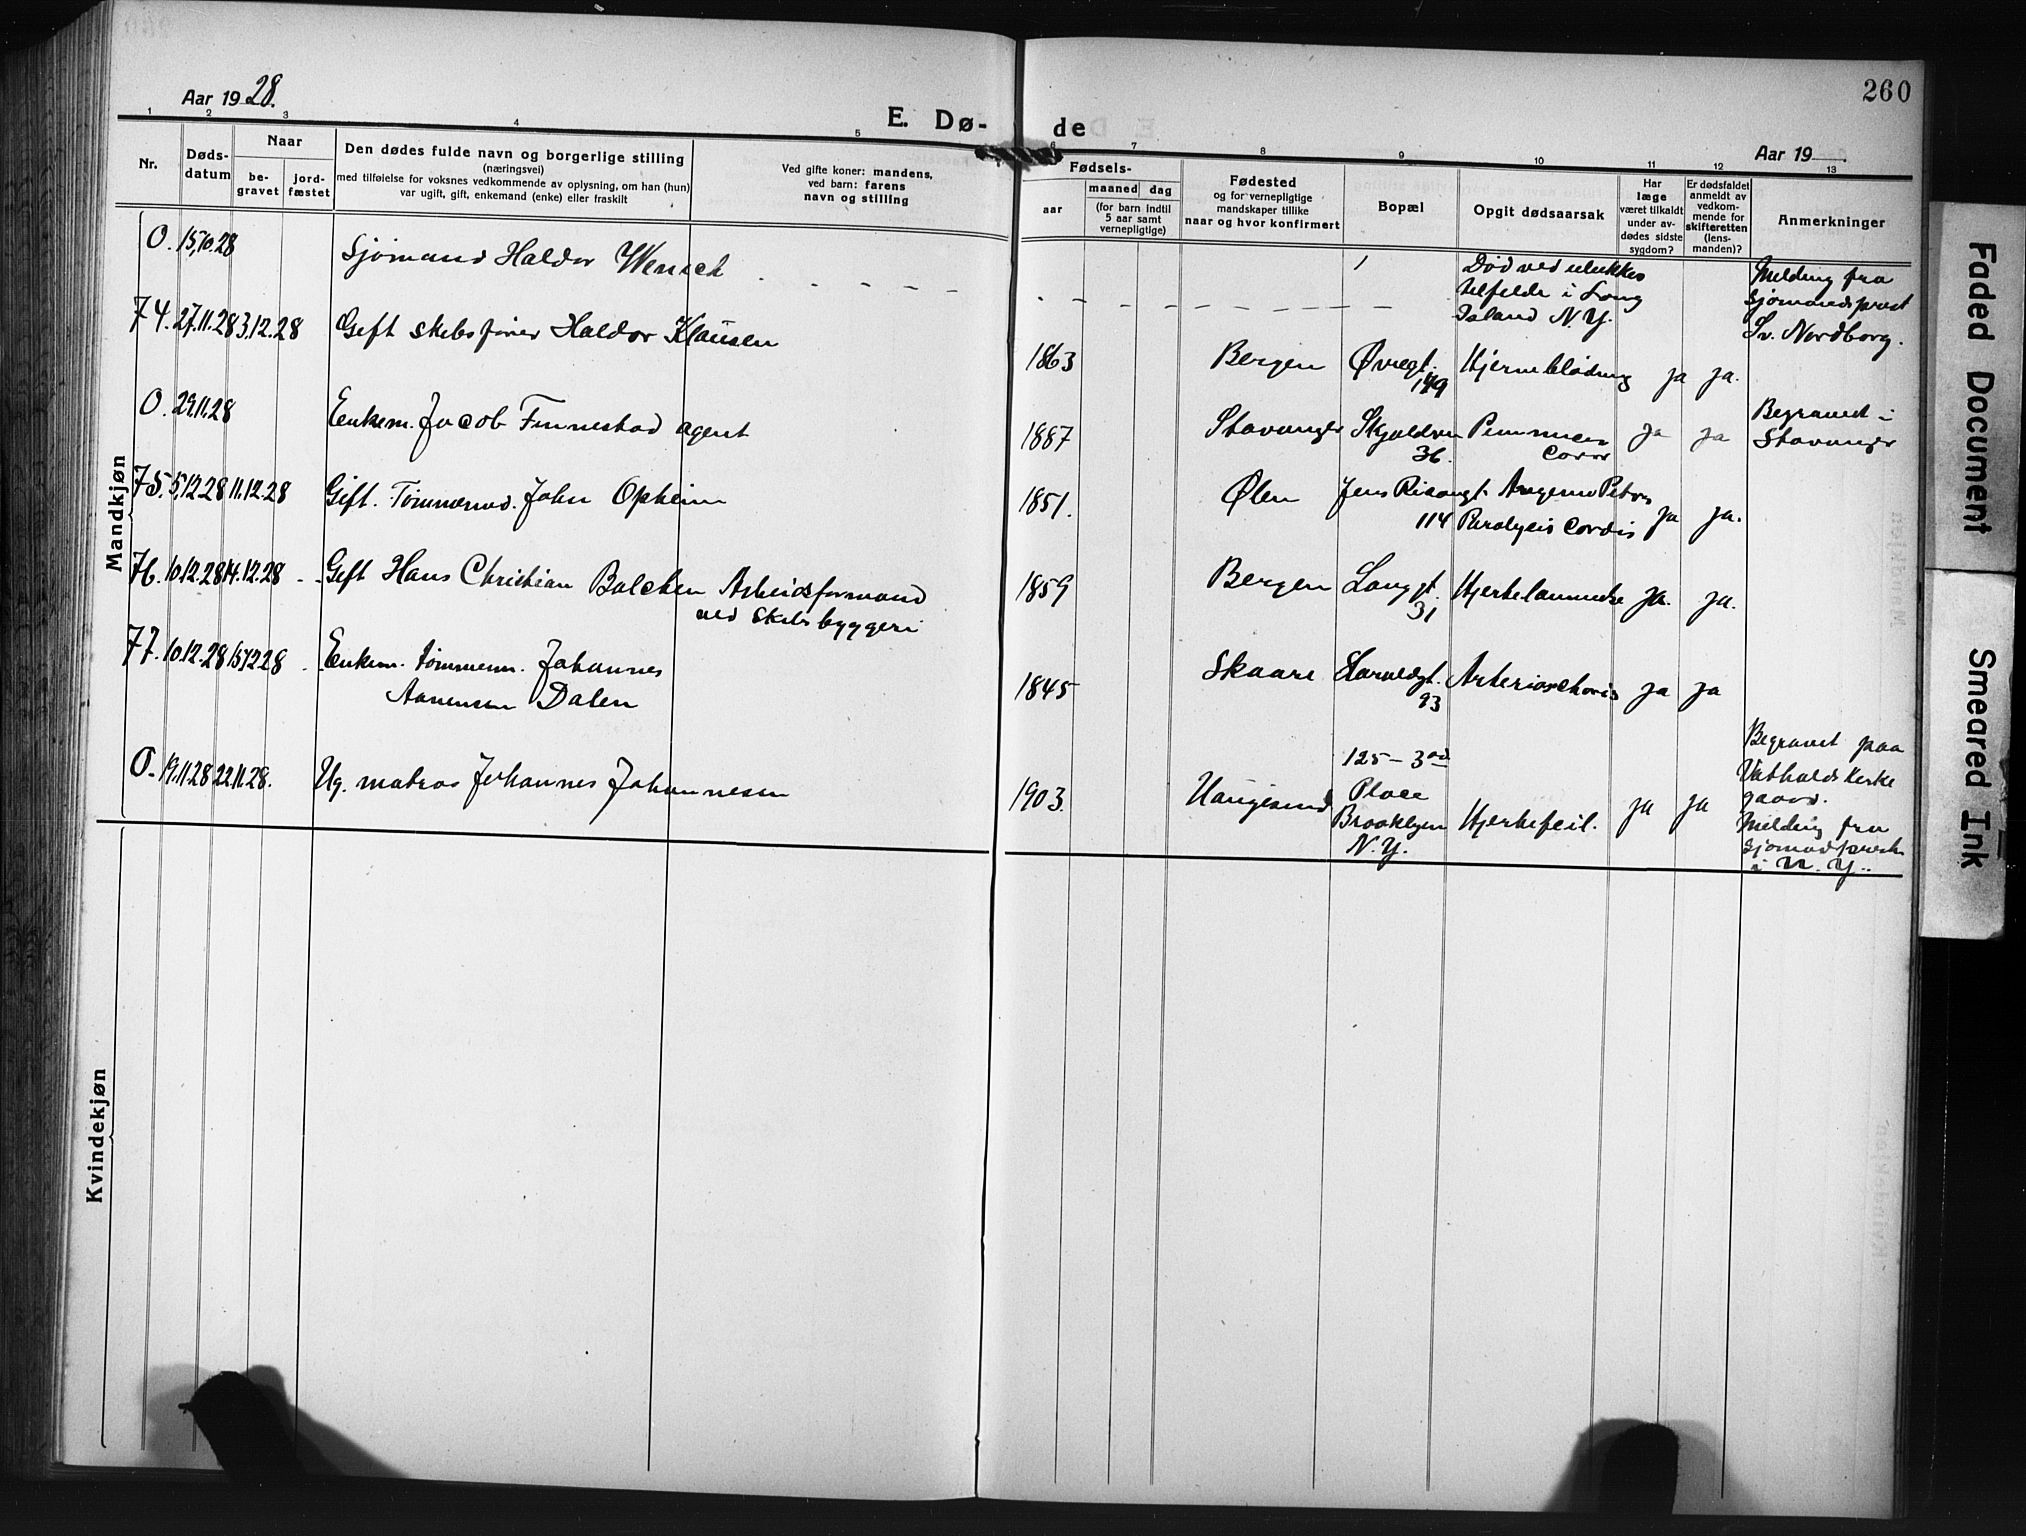 260
Aar 1928.
E. Dø-
de
Aar 19
1 2 3 4 5 6 7 8 9 10 11 12 13
Nr.
Døds-
datum
Naar
be-
gravet
jord-
fæstet
Den dødes fulde navn og borgerlige stilling
(næringsvei)
med tilføielse for voksnes vedkommende av oplysning, om han (hun)
var ugift, gift, enkemand (enke) eller fraskilt
Ved gifte koner: mandens,
ved barn: farens
navn og stilling
Fødsels-
aar
maaned dag
(for barn indtil
5 aar samt
vernepligtige)
Fødested
og for vernepligtige
mandskaper tillike
naar og hvor konfirmert
Bopæl
Opgit dødsaarsak
Har
læge
været tilkaldt
under av-
dødes sidste
sygdom?
Er dødsfaldet
anmeldt av
vedkom-
mende for
skifteretten
(lens-
manden)?
Anmerkninger
Mandkjøn
0. 15.10.28 Sjømand Haldor
Død ved ulukkes
tilfelde i Long
Island N.Y.
Melding fra
Sjømandsprest
Sv. Nordborg.
74. 27.11.28 3.12.28 Gift skibsfører Haldor Klausen
1863 Bergen Øvregt. 149 Hjerneblødning ja ja.
0. 29.11.28 Enkem. Jacob Finnestad agent
1887 Stavanger 36. ja ja
Begravet i
Stavanger
75. 5.12.28 11.12.28 Gift. Tømmerm. John Opheim
1851. Ølen Jens Risøngt. 114 Angina Pectoris
Paralysis Cordis ja ja.
76. 10.12.28 14.12.28 Gift Hans Christian Balchen Arbeidsformand
ved Skibsbyggeri
1859 Bergen Langgt. 31 Hjertelammelse ja. ja.
77. 10.12.28 15.12.28 Enkem. tømmerm. Johannes
Aanensen Dalen
1845 Skaare Haraldsgt. 93 ja ja
0. 19.11.28 22.11.28. Ug. matros Johannes Johannesen
1903. Haugesund
125 - 3rd
Place
Brooklyn
N.Y.
Hjertefeil. ja ja
Begravet paa
gaard.
Melding fra
Sjømandsprest
i N.Y.
Kvindekjøn
Faded Document
Smeared Ink